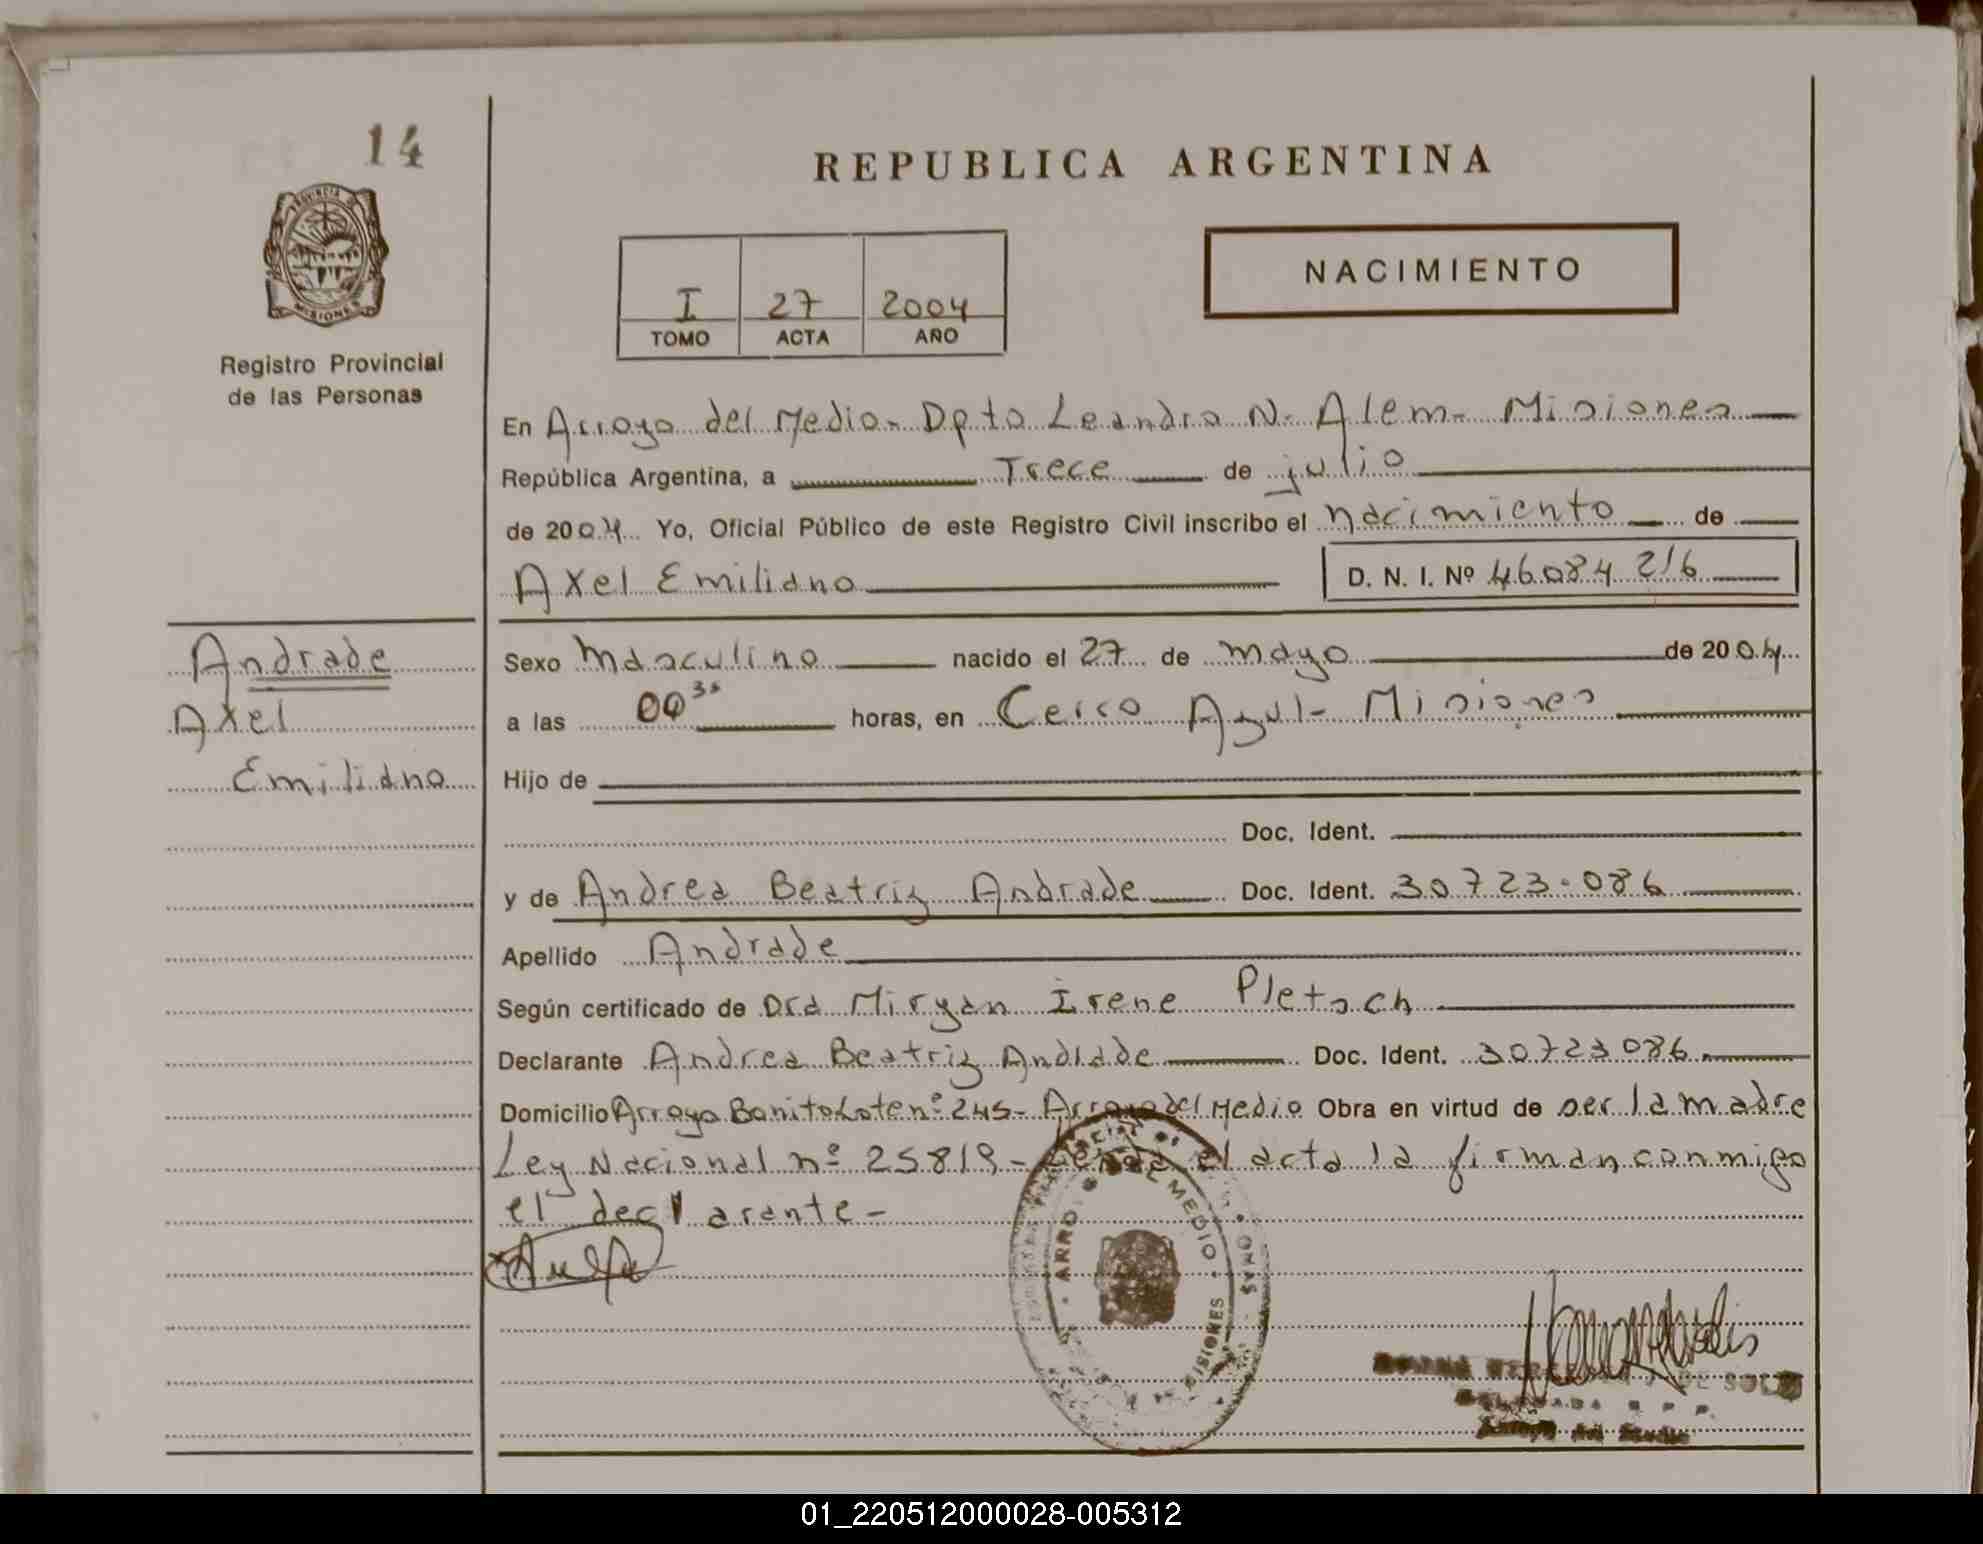 14
PROVINCIA DE
MISIONES
Registro Provincial
de las Personas
REPUBLICA ARGENTINA
I 27 2004
TOMO ACTA AÑO
NACIMIENTO
En Arroyo del Medio- Dpto Leandro N- Alem- Misiones
República Argentina, a Trece de julio
de 2004 Yo, Oficial Público de este Registro Civil inscribo el nacimiento de
Axel Emiliano D. N. I. Nº 46084216
Andrade
Axel
Emiliano
Sexo Masculino nacido el 27 de mayo de 2004
a las horas, en Cerro Azul- Misiones
Hijo de
Doc. Ident.
y de Andrea Beatriz Andrade Doc. Ident. 30723.086
Apellido Andrade
Según certificado de Dra Miryan Irene Pletsch
Declarante Andrea Beatriz Andrade Doc. Ident. 30723086
Domicilio Arroyo Bonito Lote nº 245- Arroyo del Medio Obra en virtud de ser la madre
Ley Nacional nº 25819- Leída el acta la firman conmigo
el declarante-
ARROYO DEL MEDIO
MISIONES
DE
R. P. P.
01_220512000028-005312